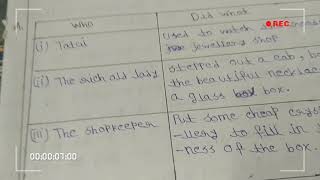 REC
Who
Did what
(i) Tatai
used to watch
jewellery shop
(ii) The rich old lady
stepped out a cab, b
the beautiful necklac
a glass box.
(iii) The shopkeeper
Put some cheap crys
-llery to fill in
-ness of the box.
00:00:07:00